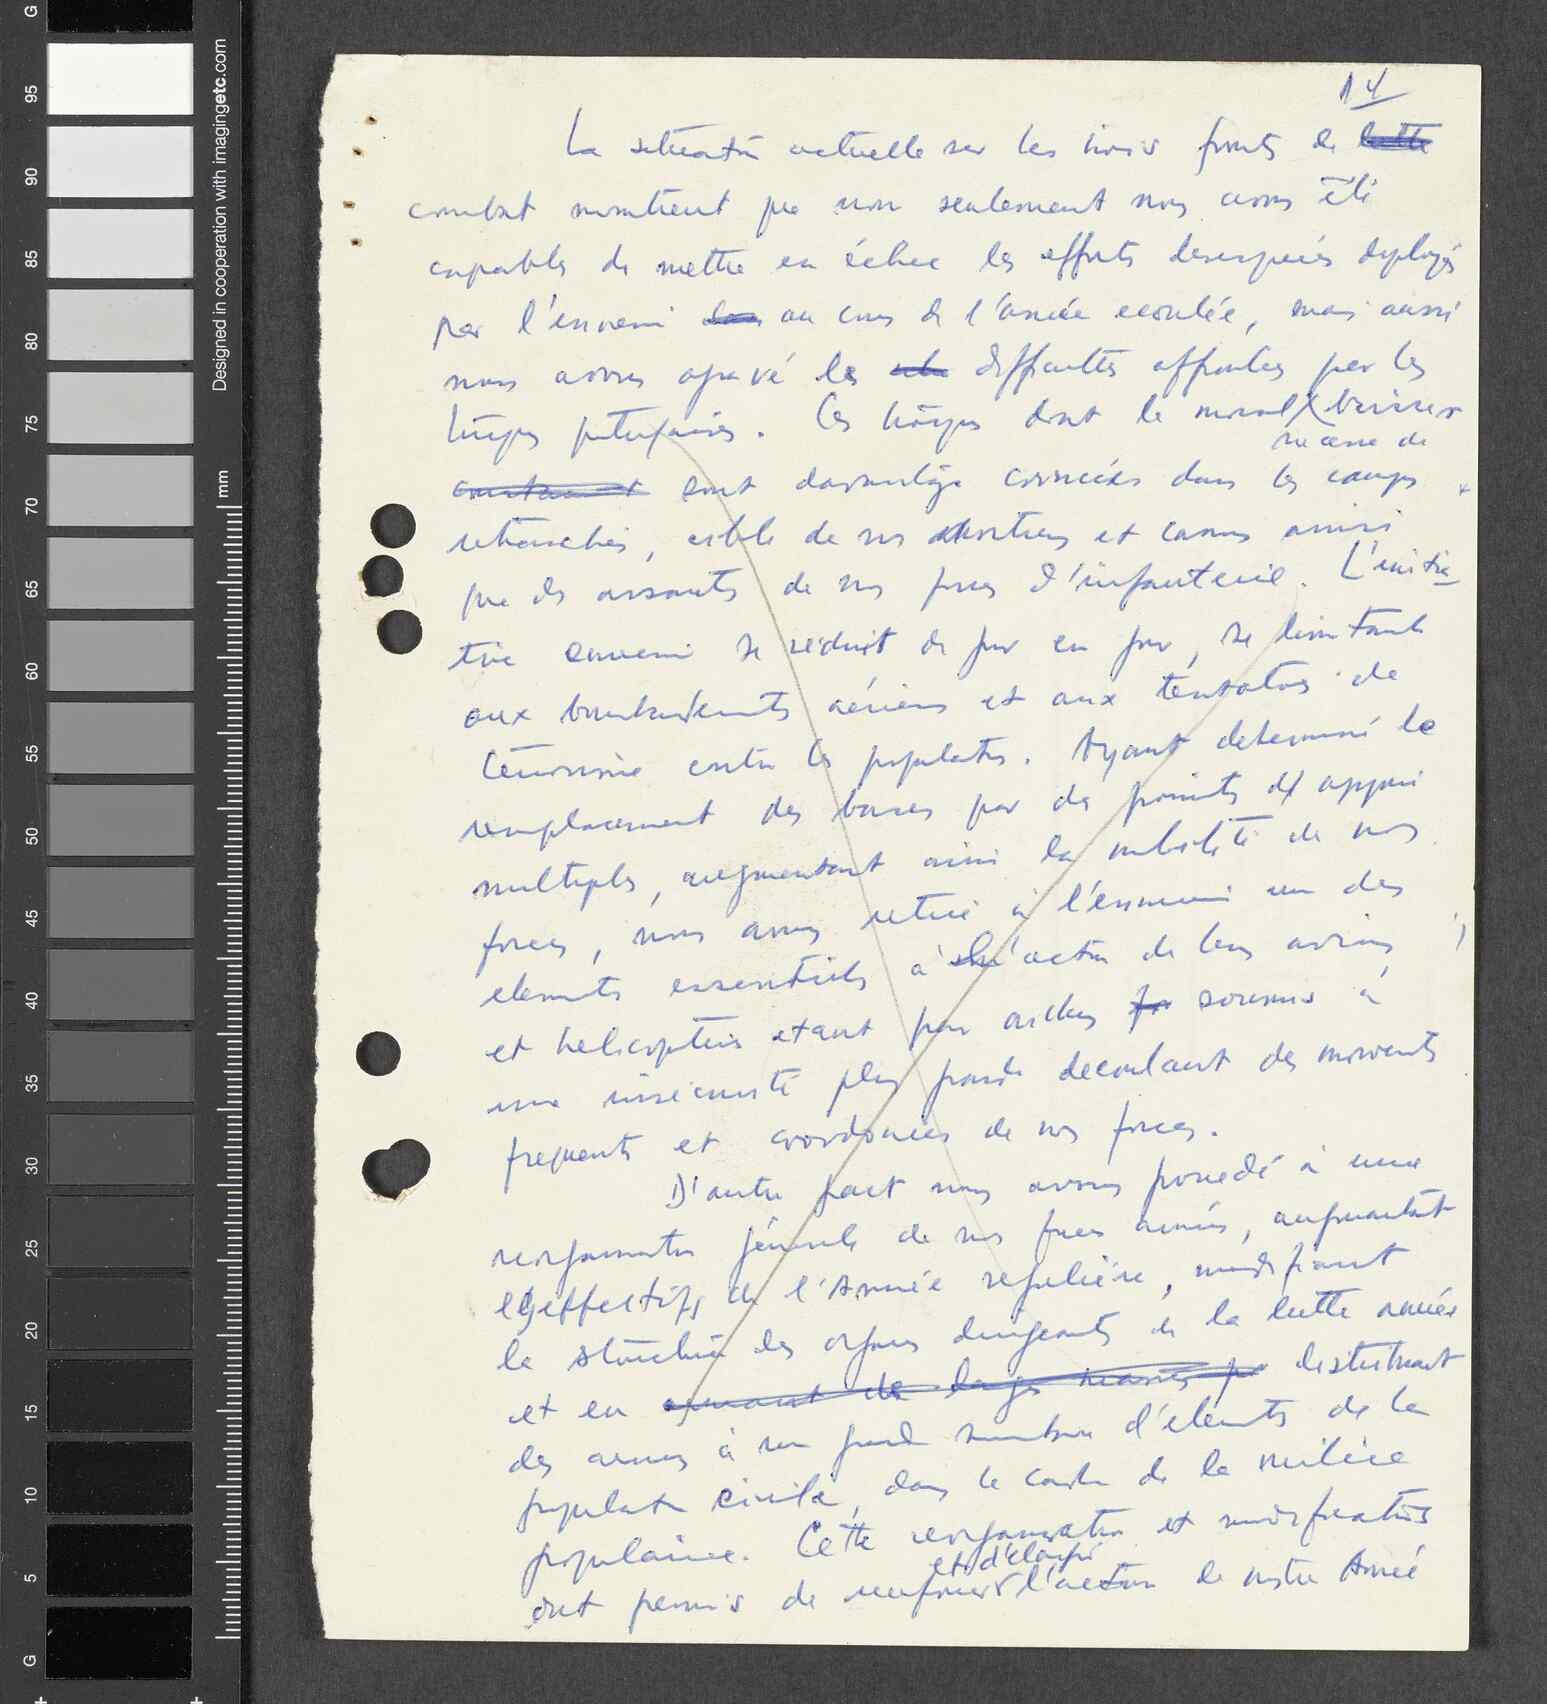 14
La situation actuelle sur les trois fronts de lutte
combat montrent que non seulement nous avons été
capables de mettre en échec les efforts desesperés deployés
par l'ennemi au cours de l'année ecoulée, mais aussi
nous avons agravé les difficultés affrontées par les
troupes portugaises. Ces troupes dont le moral baisser
ne cesse de
sont davantage coincées dans les camps
retranchés, cible de nos mortiers et canons ainsi
que des assauts de nos forces d'infanterie. L'initia-
tive ennemi se reduit de jour en jour, se limitant
aux bombardements aériens et aux tentatives de
terrorisme contre les populations. Ayant determiné le
remplacement des bases par des points d'appui
multiples, augmentant ainsi la mobilité de nos
forces, nous avons retiré à l'ennemi un des
elements essentiels à l'action de leurs avions,
et helicoptères etant par ailleurs soumis à
une insécurité plus grande decoulant des mouvements
frequents et coordonnées de nos forces.
D'autre part nous avons procedé à une
reorganisation générale de nos forces armées, augmentant
les effectifs de l'Armée regulière, modifiant
la structure des organes dirigeants de la lutte armée
et en armant de larges masses po distribuant
des armes à un grand nombre d'elements de la
population civile, dans le cadre de la milice
populaire. Cette reorganisation et modifications
et d'elargir
ont permis de renforcer l'action de notre Armée
Designed in cooperation with imagingetc.com
mm
G
95
90
85
80
75
70
65
60
55
50
45
40
35
30
25
20
15
10
5
G